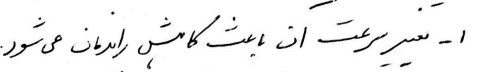 ۱- تغییر سرعت آن باعث کاهش راندمان می‌شود.